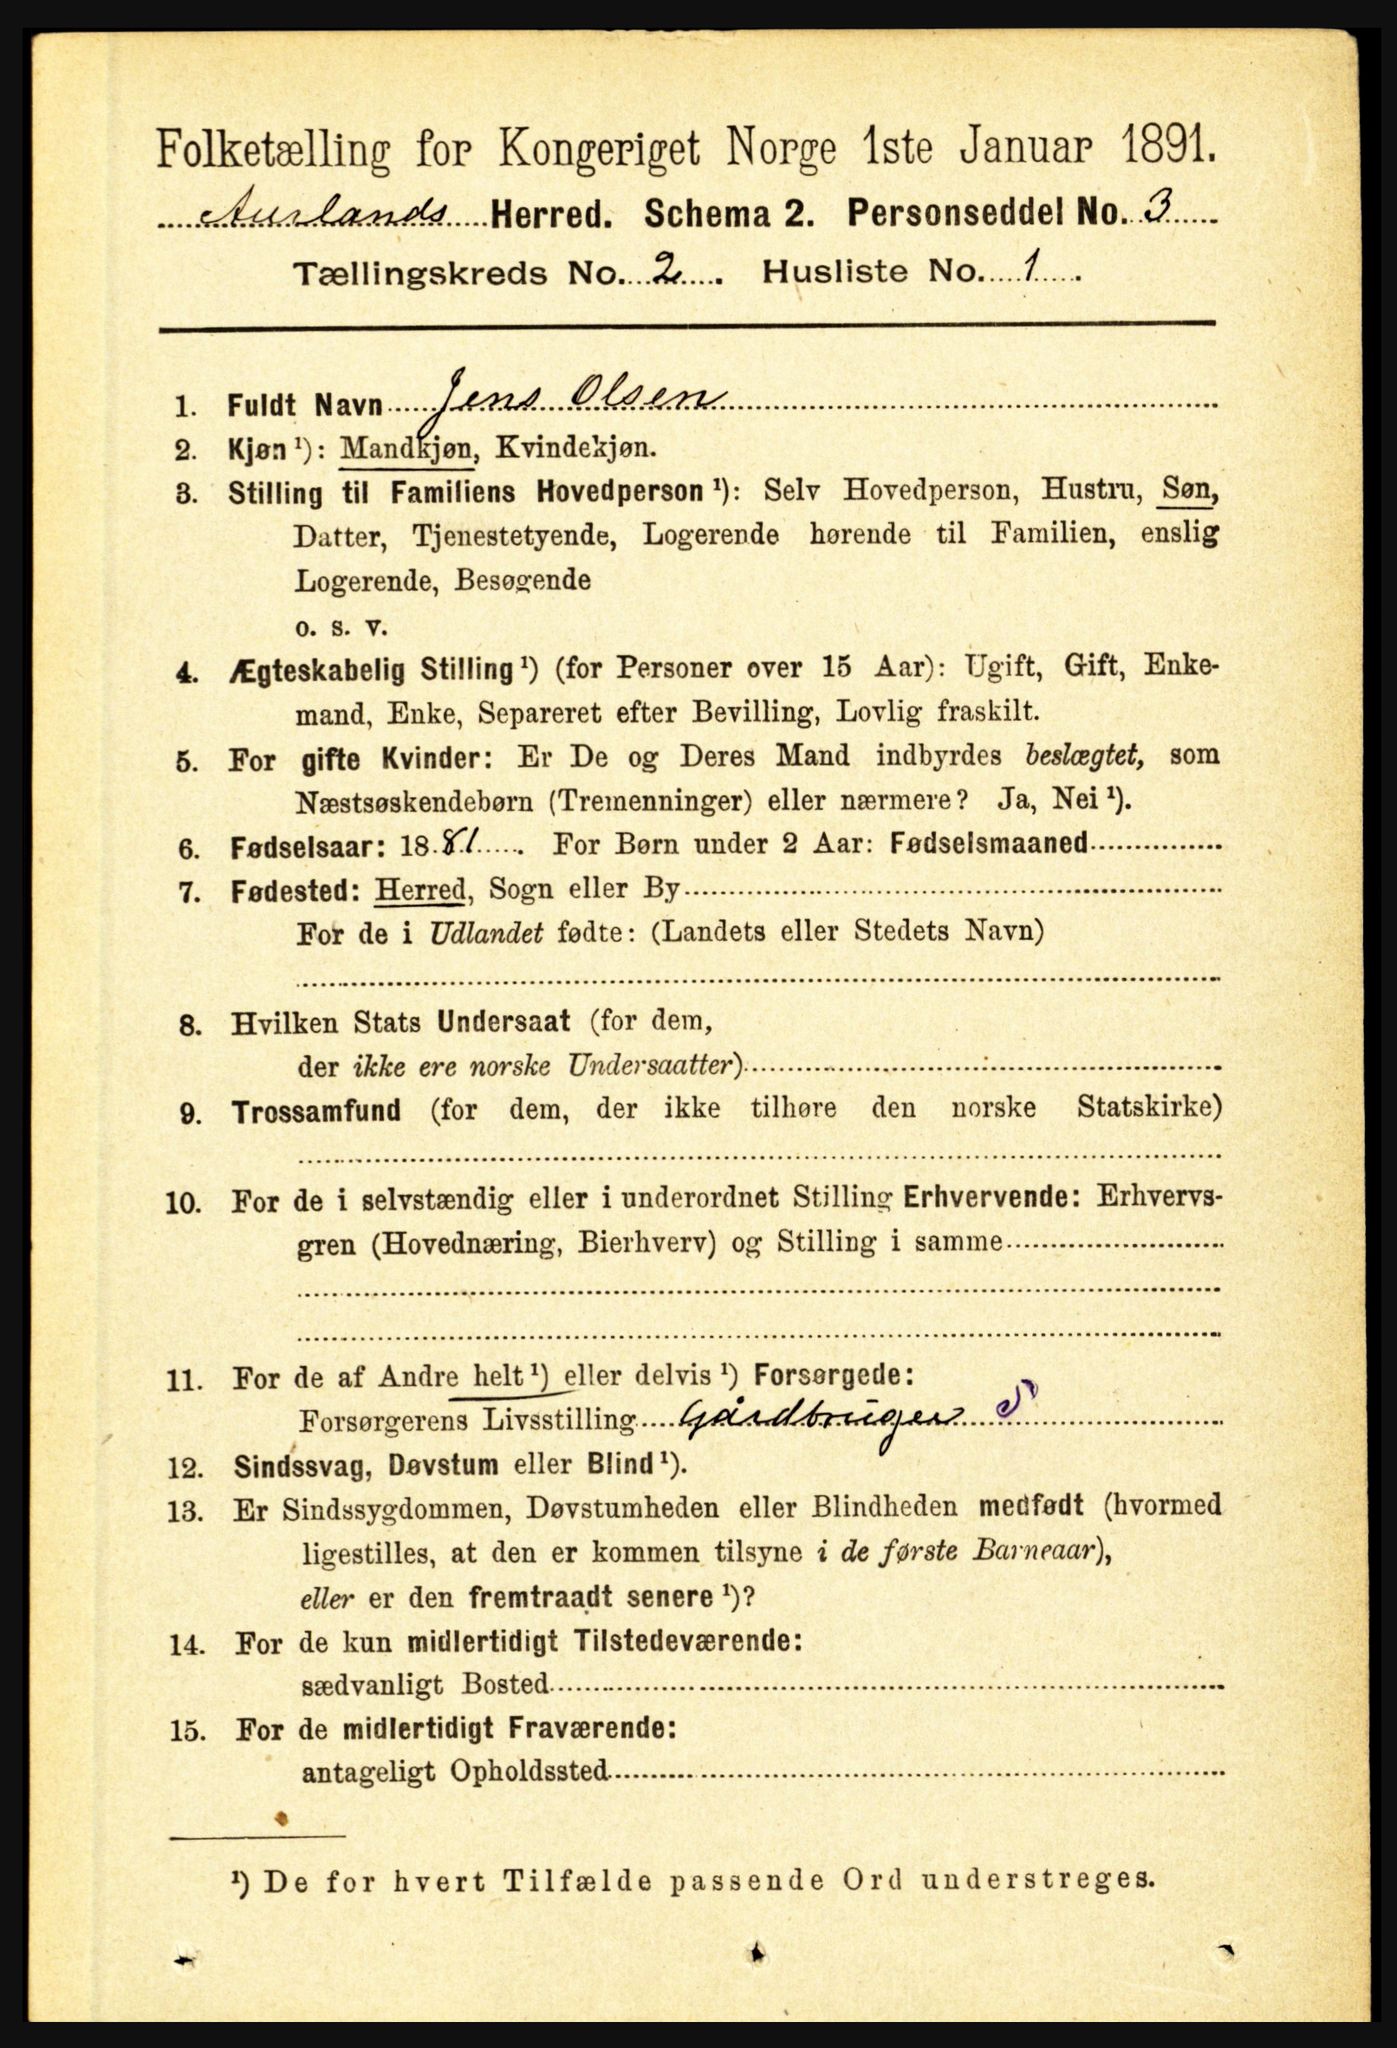 Folketælling for Kongeriget Norge 1ste Januar 1891.
Aurlands Herred. Schema 2. Personseddel No. 3
Tællingskreds No. 2. Husliste No. 1.
1. Fuldt Navn Jens Olsen
2. Kjøn¹): Mandkjøn, Kvindekjøn.
3. Stilling til Familiens Hovedperson¹): Selv Hovedperson, Hustru, Søn,
Datter, Tjenestetyende, Logerende hørende til Familien, enslig
Logerende, Besøgende
o. s. v.
4. Ægteskabelig Stilling¹) (for Personer over 15 Aar): Ugift, Gift, Enke-
mand, Enke, Separeret efter Bevilling, Lovlig fraskilt.
5. For gifte Kvinder: Er De og Deres Mand indbyrdes beslægtet, som
Næstsøskendebørn (Tremenninger) eller nærmere? Ja, Nei¹).
6. Fødselsaar: 1881. For Børn under 2 Aar: Fødselsmaaned
7. Fødested: Herred, Sogn eller By
For de i Udlandet fødte: (Landets eller Stedets Navn)
8. Hvilken Stats Undersaat (for dem,
der ikke ere norske Undersaatter)
9. Trossamfund (for dem, der ikke tilhøre den norske Statskirke)
10. For de i selvstændig eller i underordnet Stilling Erhvervende: Erhvervs-
gren (Hovednæring, Bierhverv) og Stilling i samme
11. For de af Andre helt¹) eller delvis¹) Forsørgede:
Forsørgerens Livsstilling Gårdbruger
12. Sindssvag, Døvstum eller Blind¹).
13. Er Sindssygdommen, Døvstumheden eller Blindheden medfødt (hvormed
ligestilles, at den er kommen tilsyne i de første Barneaar),
eller er den fremtraadt senere¹)?
14. For de kun midlertidigt Tilstedeværende:
sædvanligt Bosted
15. For de midlertidigt Fraværende:
antageligt Opholdssted
¹) De for hvert Tilfælde passende Ord understreges.